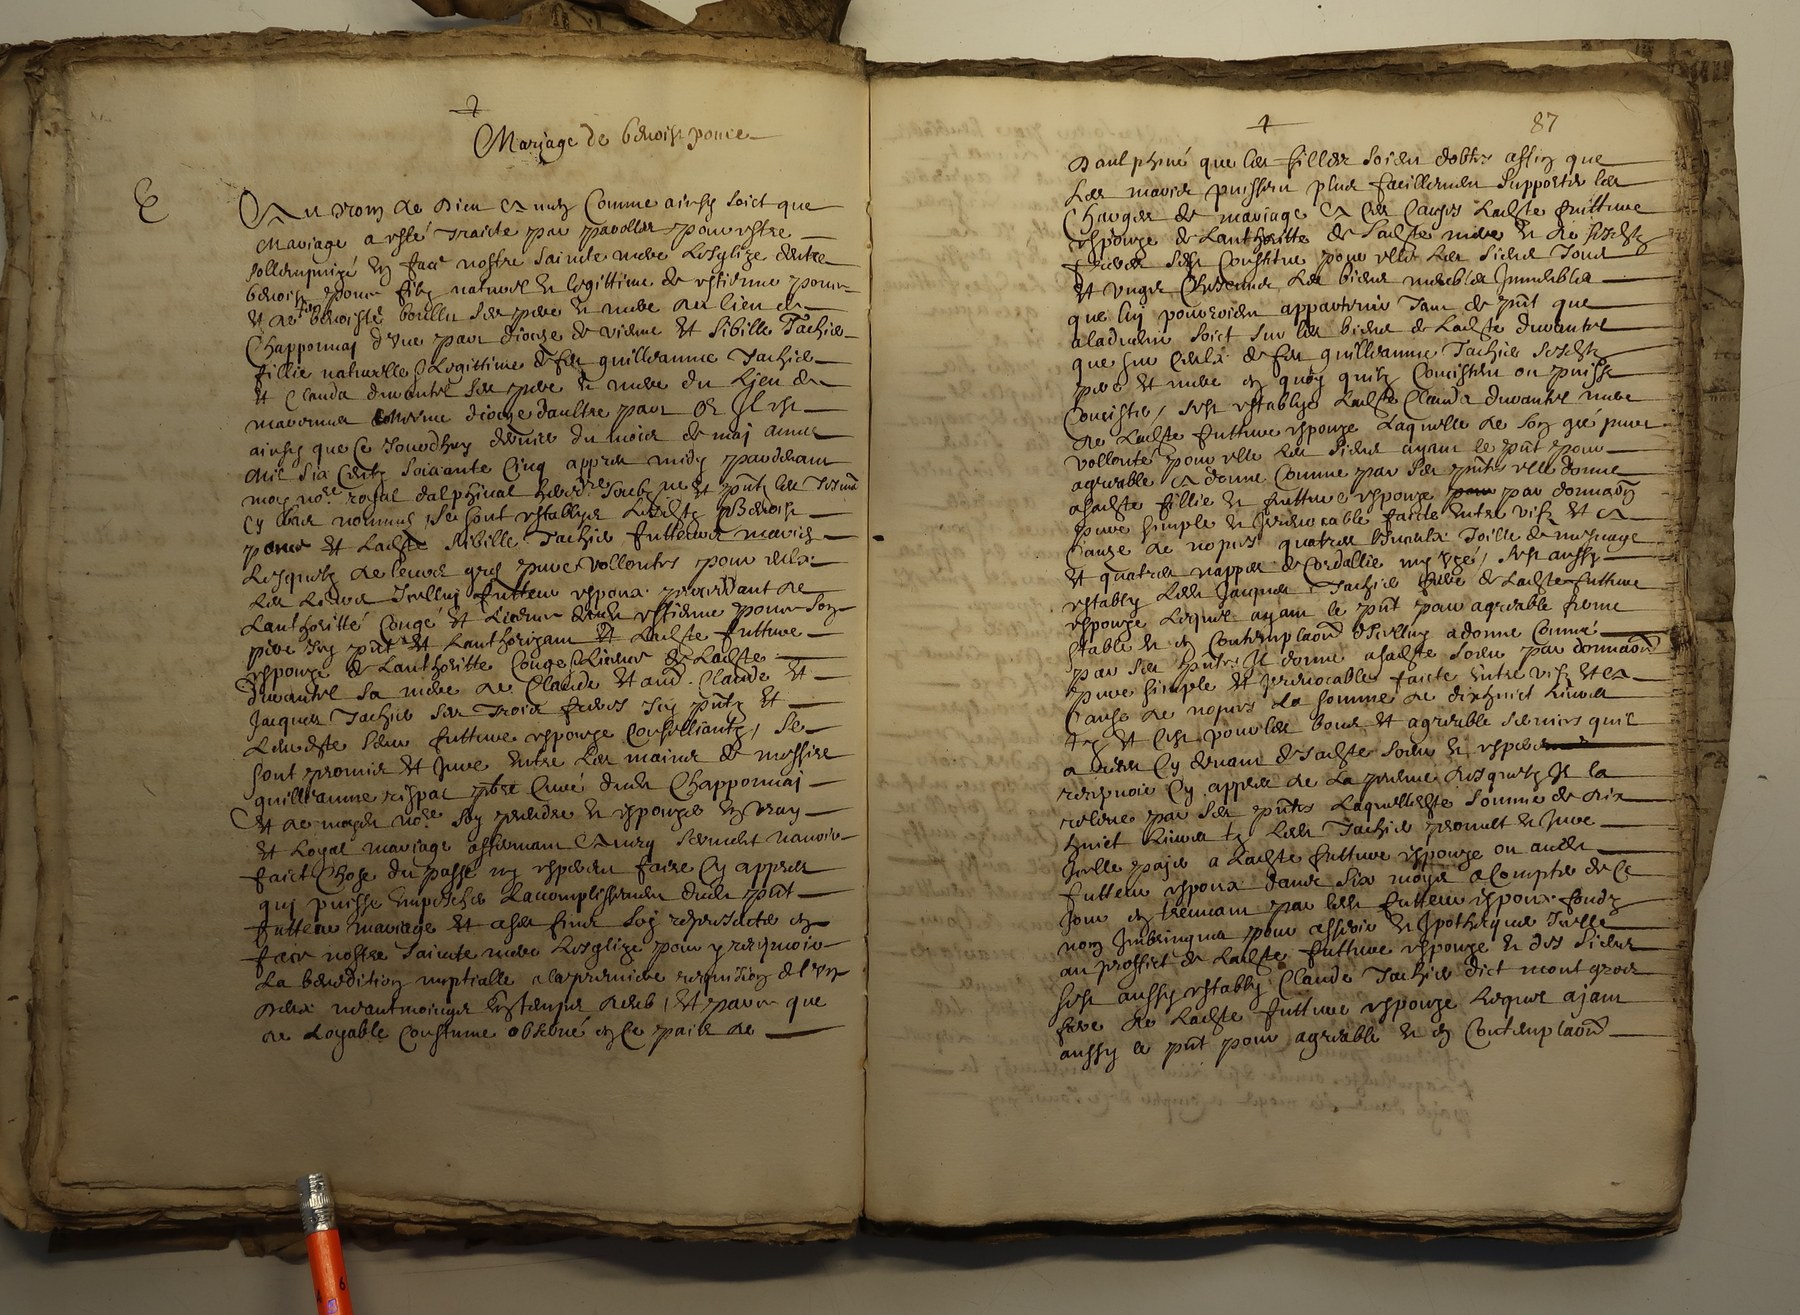 Mariage de benoist ponce
Au nom de Dieu Amen Comme ainsy soict que
Mariage a esté traicte par parolles pour estre
sollempnizé en face nostre saincte mere Lesglize entre
benoist ponce filz naturel et legittime de estienne ponce
et de benoiste bouillu ses pere et mere du lieu de
Chapponnay diocese de vienne Et Sibille Tachie
fillie naturelle & Legittime de feu guilleaume Tachie
et Clauda duvantel ses pere et mere du Lieu de
mavernue diocese daultre part Or Il est
ainsy que Ce Jourdhuy dernier du mois de may annee
Mil six Centz soixante Cinq appres midy pardevant
moy no.re royal dalphinal heredre soubzne et pntz les tesmz
Cy bas nommes, se sont establys Lesdtz Benoist
ponce et Ladte Sibille Tachie futteurs maries
Lesquelz de leurs gres pures vollontes pour eulx
Les Lieurs Icelluy futteur espoux procedant de
Lanthoritté Congé et Licence dudt estienne ponce son
pere Icy pnt et Lauthorizant Et Ladte future
espouze de Lauthoritte Conge & Licence de Ladte
Duvantel sa mere de Claude Et aud. Claude et
Jacques Tachie ses trois freres Icy pntz et
Ladte future espouze Conseilliantz, se
sont promis et Jure entre Les mains de messire
guilleaume rispal pbre Curé dudt Chapponnay
Et de moydt no.re soy prendre en espouzes en vray
et Loyal mariage affirmant Avec serment navoir
faict Chose du passe ny esperer faire Cy appres
qui puisse empescher Laccomplissement dudt pnt
futteur mariage et a ses fins soy representer en
face nostre saincte mere Lesglize pour y recepvoir
La benediction nuptialle a la premiere requisition de lun
Deux neantmoingz En temps deub, Et parce que
de Loyable Coustume observé en Ce pais de
87
Daulphiné que les filles soient dottes affin que
Les maries puissent plus facillement supporter les
Charges de mariage A Ces Causes Ladte future
espouze de Lauthoritte de sadte mere et de sesdtz
freres sest Constitue pour elle Les siens Tous
et Ungz Chescungz Les biens meubles Immeubles
que luy pourroient appartenir Tant de pnt que
aladvenir soict sur les biens de Ladte duvantel
que sur Ceulx de feu guilleaume Tachie sesdtz
pere et mere en quoy quilz Concistent ou puisse
Concister, sest establye Ladte Clauda duvantel mere
de Ladte future espouze Laquelle de son gré pure
vollonté pour elle Les siens ayant le pnt pour
agreable a donne Comme par Ses pntes elle donne
a sadte fillie et future espouze par donnaon
pure simple et Irrevocable faicte entre vifz et a
Cause de nopces quatres linceulx Toille de mesnage
et quatres nappes de Cordallie my uzé, sest aussy
estably Ledt Jacques Tachie frere de Ladte future
espouze Lequel ayant le pnt pour agreable ferme
stable et en Contemplaon dIcelluy a donne Comme
par Ses pntes Il donne a sadte soeur par donnaon
pure simple et Irrevocable faicte entre vifz et a
Cause de nopces La somme de dixhuict Livres
tz Et Cest pour les bons et agreable services quil
a receu Cy devant de sadte soeur et espere
recepvoir Cy appres de La preuve desquelz Il la
releve par Ses pntes Laquelle dte somme de dix
huict Livres tz Ledt Tachie promet et Jure
Icelle paier a Ladte future espouze ou audt
futteur espoux dans six moys a Compter de Ce
Jour en tenant par ledt futteur espoux fondz
non Imbringues pour asseoir et Ipotheques Icelle
au proffict de Ladte future espouze et des siens
sest aussy estably Claude Tachie dict mont gros
frere de Ladte future espouze Lequel ayant
aussy le pnt pour agreable et en Contemplaon